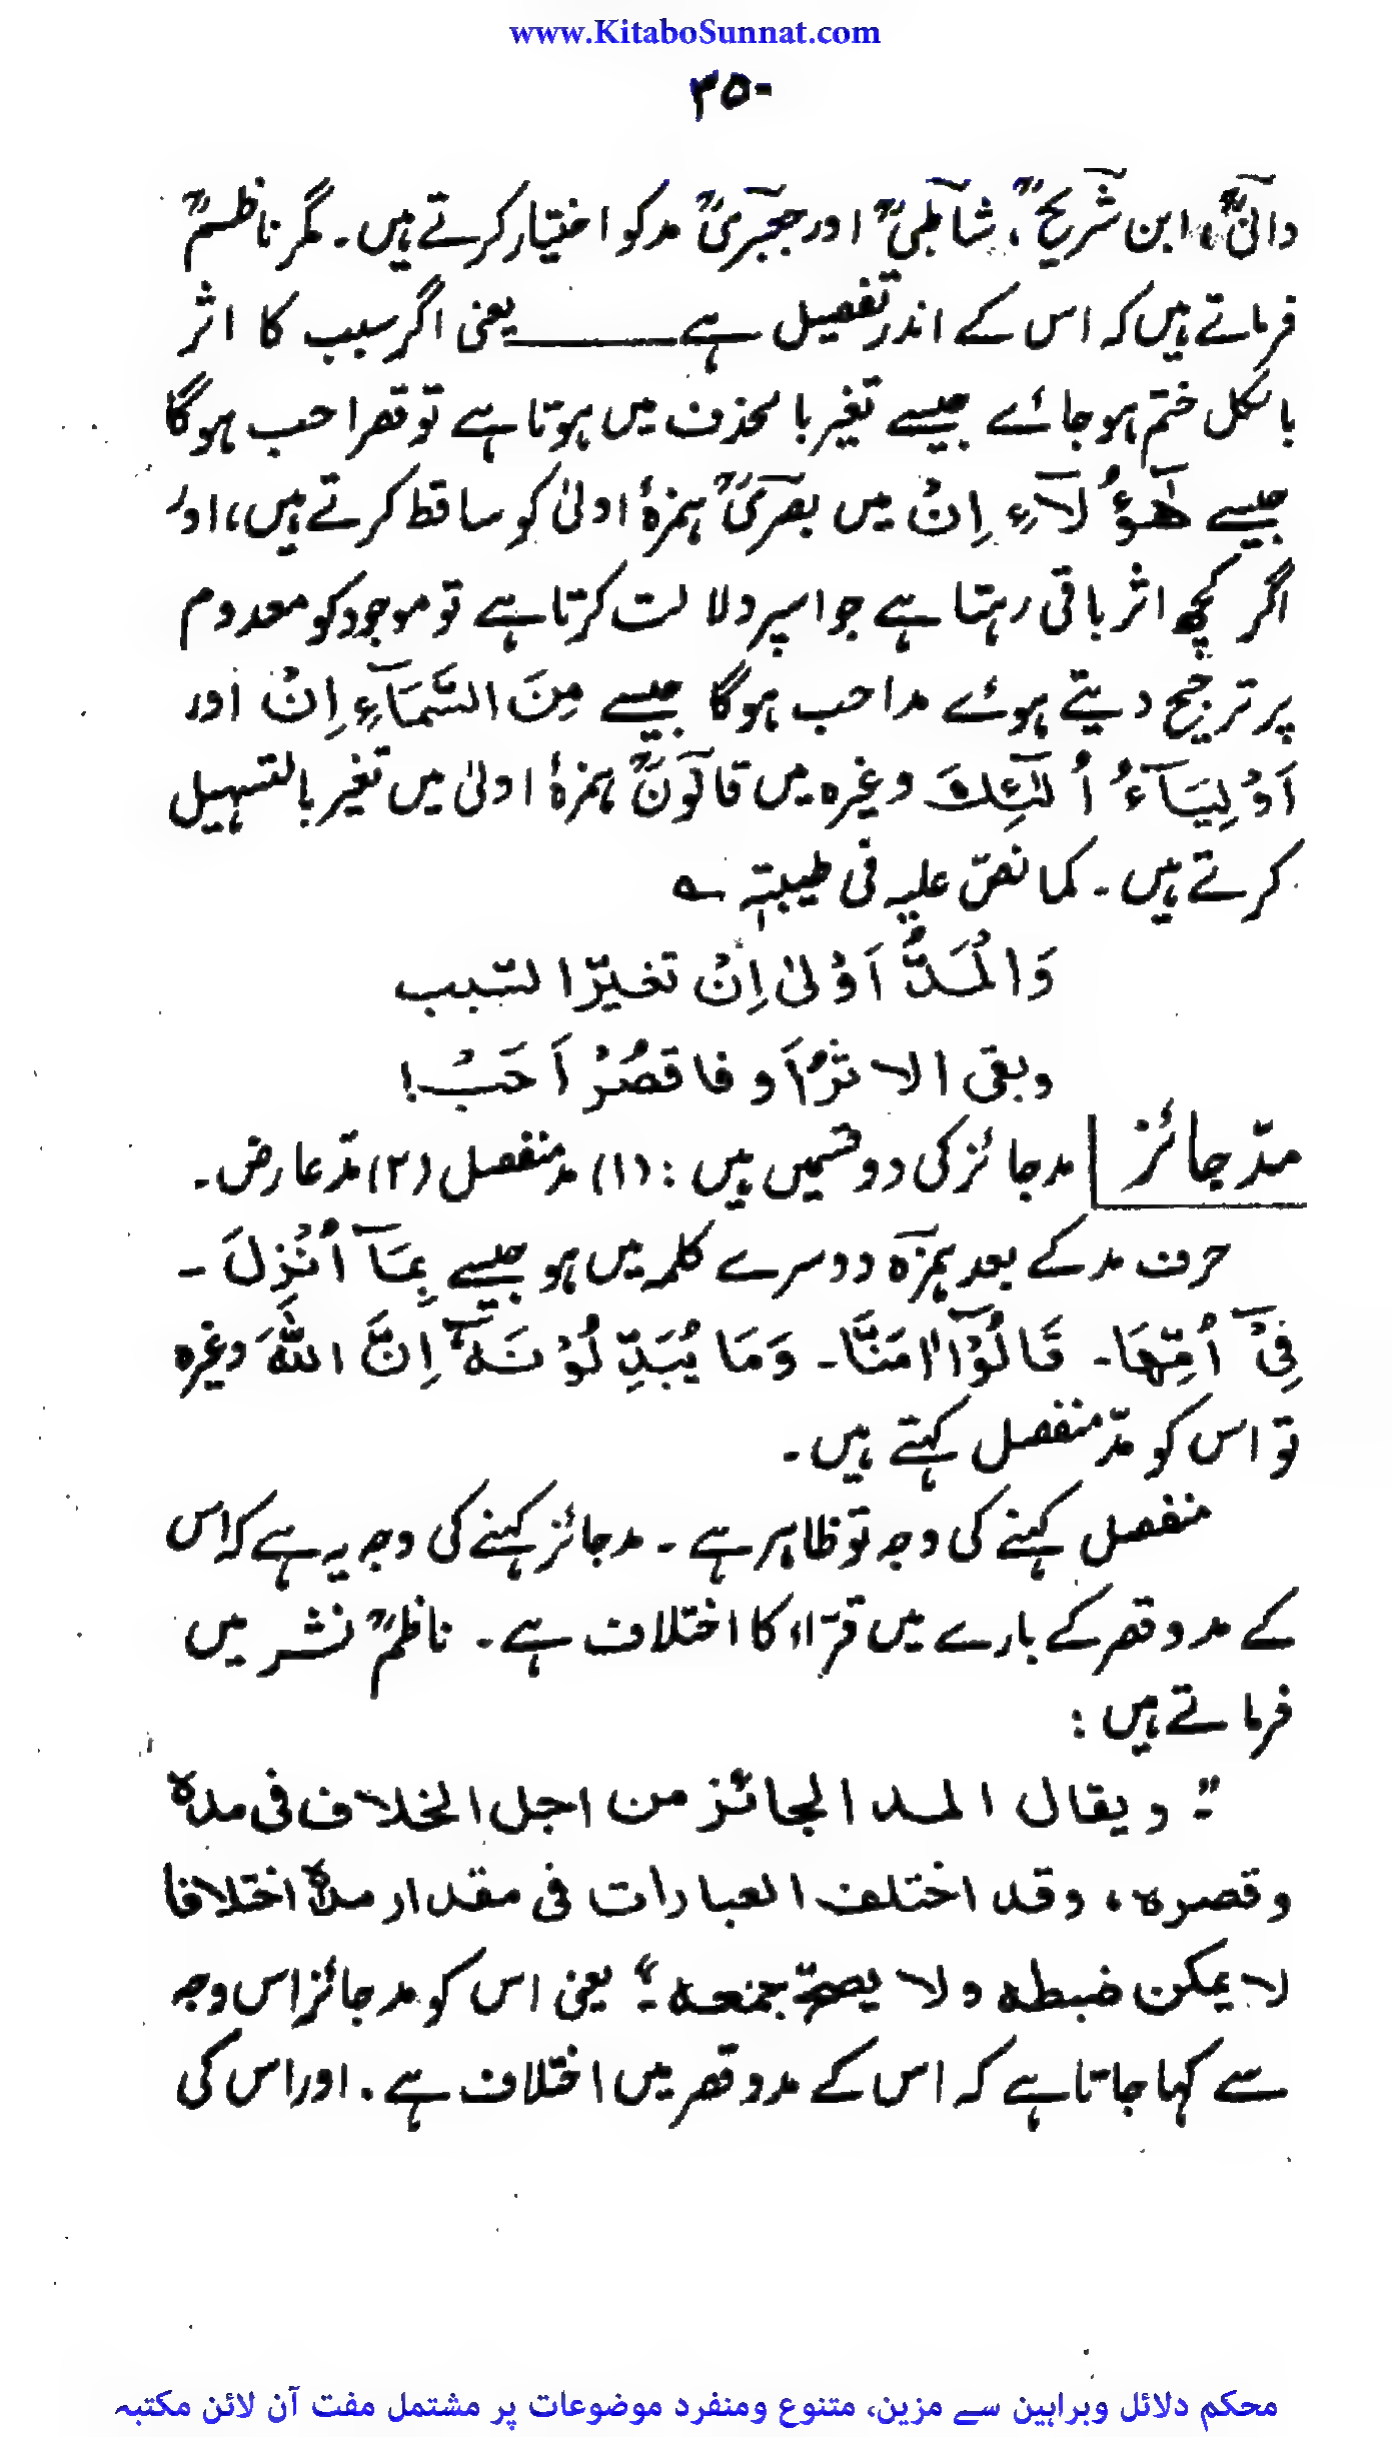 www.KitaboSunnat.com
۳۵۰
دانیؒ، ابن شریحؒ، شاطبیؒ اور جعبریؒ مد کو اختیار کرتے ہیں۔ مگر ناظمؒ
فرماتے ہیں کہ اس کے اندر تفصیل ہے ــــــ یعنی اگر سبب کا اثر
بالکل ختم ہو جائے جیسے تغیر بالحذف میں ہوتا ہے تو قصر احب ہوگا
جیسے هٰٓؤُلَآءِ اِنْ میں بصریؒ ہمزۂ اولیٰ کو ساقط کرتے ہیں، اور
اگر کچھ اثر باقی رہتا ہے جو اسپر دلالت کرتا ہے تو موجود کو معدوم
پر ترجیح دیتے ہوئے مد احب ہوگا جیسے مِنَ السَّمَآءِ اِنْ اور
اَوْلِيَآءُ اُلٰٓئِكَ وغیرہ میں قالونؒ ہمزۂ اولیٰ میں تغیر بالتسہیل
کرتے ہیں۔ کما نصّ علیہ فی طیبتہٖ ؎
وَالْمَدُّ اَوْلٰى اِنْ تغيّر السّبب
وبقى الاثرُ اَو فاقصُرْ اَحَبْ!
مدّ جائز
مد جائز کی دو قسمیں ہیں : (۱) مد منفصل (۲) مدّ عارض۔
حرف مد کے بعد ہمزہ دوسرے کلمہ میں ہو جیسے بِمَآ اُنْزِلَ ۔
فِىْٓ اُمِّهَا۔ قَالُوْٓا اٰمَنَّا۔ وَمَا يُبَدِّلُوْنَهٗٓ اِنَّ اللّٰهَ وغیرہ
تو اس کو مدّ منفصل کہتے ہیں۔
منفصل کہنے کی وجہ تو ظاہر ہے ۔ مد جائز کہنے کی وجہ یہ ہے کہ اس
کے مد و قصر کے بارے میں قرّاء کا اختلاف ہے۔ ناظمؒ نشر میں
فرماتے ہیں :
"ويقال المد الجائز من اجل الخلاف فى مده
وقصره، وقد اختلف العبارات فى مقدار مدهٖ اختلافا
لا يمكن ضبطه ولا يصحّ جمعه۔" یعنی اس کو مد جائز اس وجہ
سے کہا جاتا ہے کہ اس کے مد و قصر میں اختلاف ہے۔ اور اس کی
محکم دلائل وبراہین سے مزین، متنوع ومنفرد موضوعات پر مشتمل مفت آن لائن مکتبہ